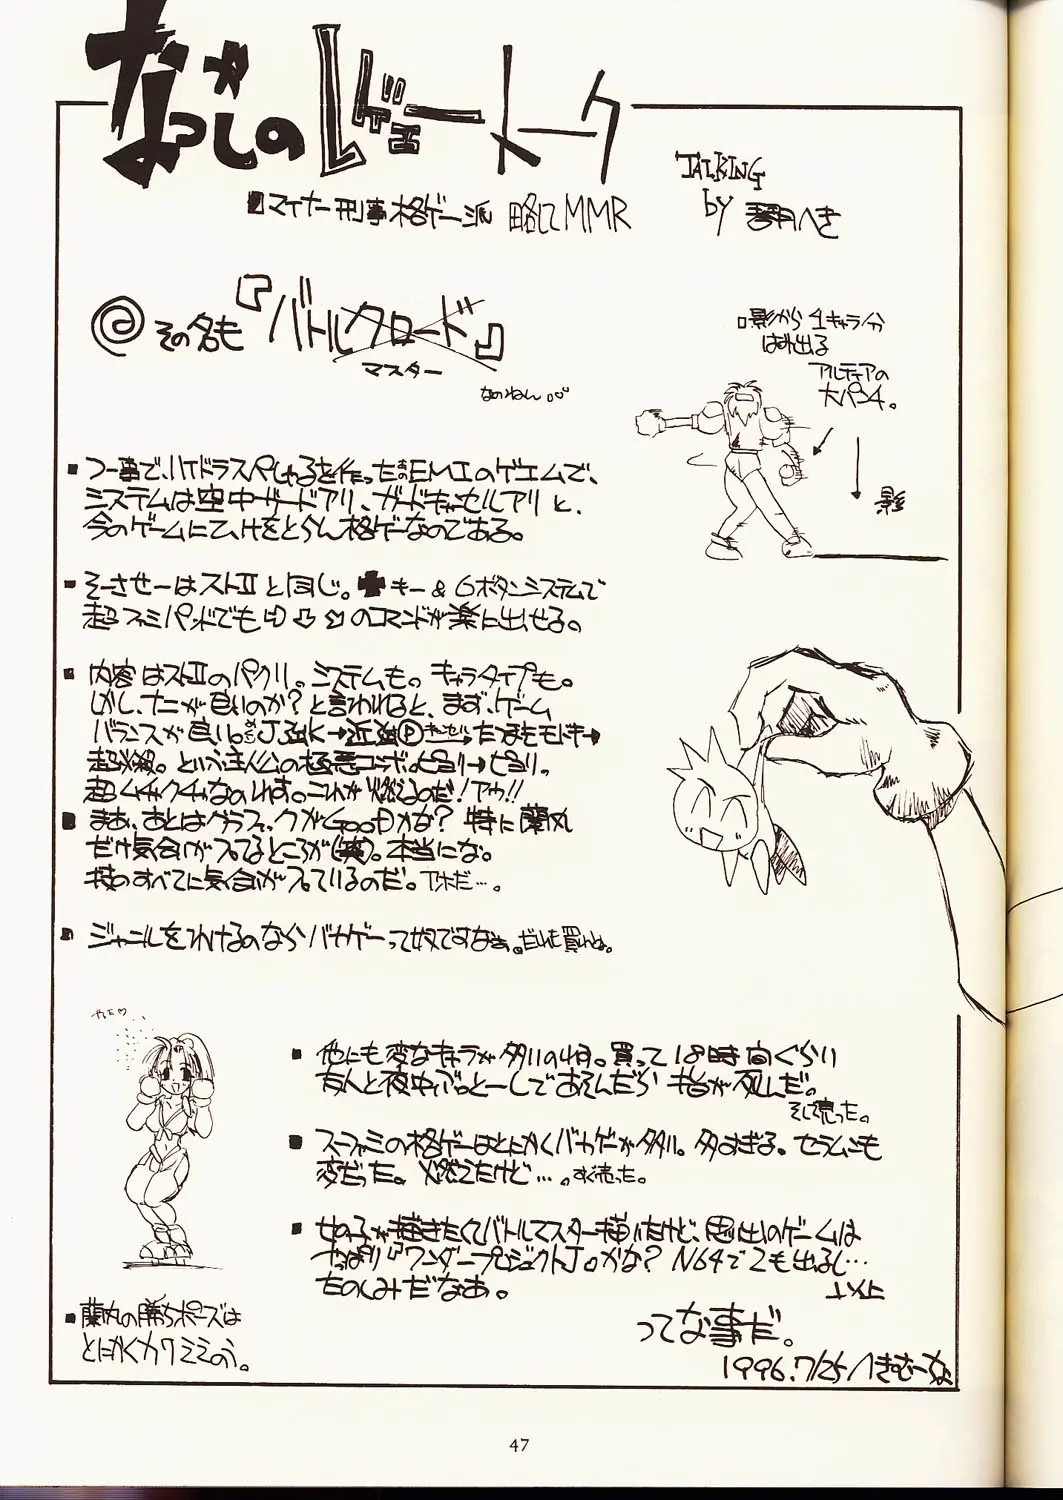 なつかしのレヴュートーク
TALKING
by 琴月へき
マイナー刑事格ゲー派 略してMMR
@その名も『バトルクロード』
マスター
なのねん
影から1キャラ分
はみ出る
アルティアの
大パンチ。
影
つー事で、ハイドラスペしゃるを作ったあのEMIのゲエムで、
システムは空中ガードアリ、ガードキャンセルアリと、
今のゲームにひけをとらん格ゲーなのである。
そーさせーはストⅡと同じ。✚キー&6ボタンシステムで
超ファミパッドでも⇨⇩⬂のコマンドが楽に出せる。
内容はストⅡのパクリ。システムも。キャラタイプも。
しかし、ナニが良いのか?と言われると、まず、ゲーム
バランスが良い。J強K→近強Ⓟキャンセル→たつまきモドキ→
超必殺。という主人公の極悪コンボ。ピヨリ→ピヨリ。
超ムチャクチャなのれす。これが燃えるのだ!アゥ!!
まあ、あとはグラフィックがGooDかな?特に蘭丸
だけ気合いが入ってるところが(笑)。本当にな。
技のすべてに気合が入っているのだ。アホだ…。
ジャンルをわけるのならバカゲーって奴ですなぁ。だれも買わんわ。
やった♡
他にも変なキャラが多いのよね。買って18時間ぐらい
友人と夜中ぶっとーしであそんだら本台が死んだ。
そして売った。
スーファミの格ゲーはとにかくバカゲーが多い。多すぎる。セラムンも
変だった。燃えたけど…。すぐ売った。
女の子が描きたくてバトルマスター描いたけど、思い出のゲームは
やっぱり『ワンダープロジェクトJ』かな?N64で2も出るし…
たのしみだなあ。
以上
ってな事だ。
1996.7/25/へきむーな
蘭丸の勝ちポーズは
とにかくカワミミのう。
47